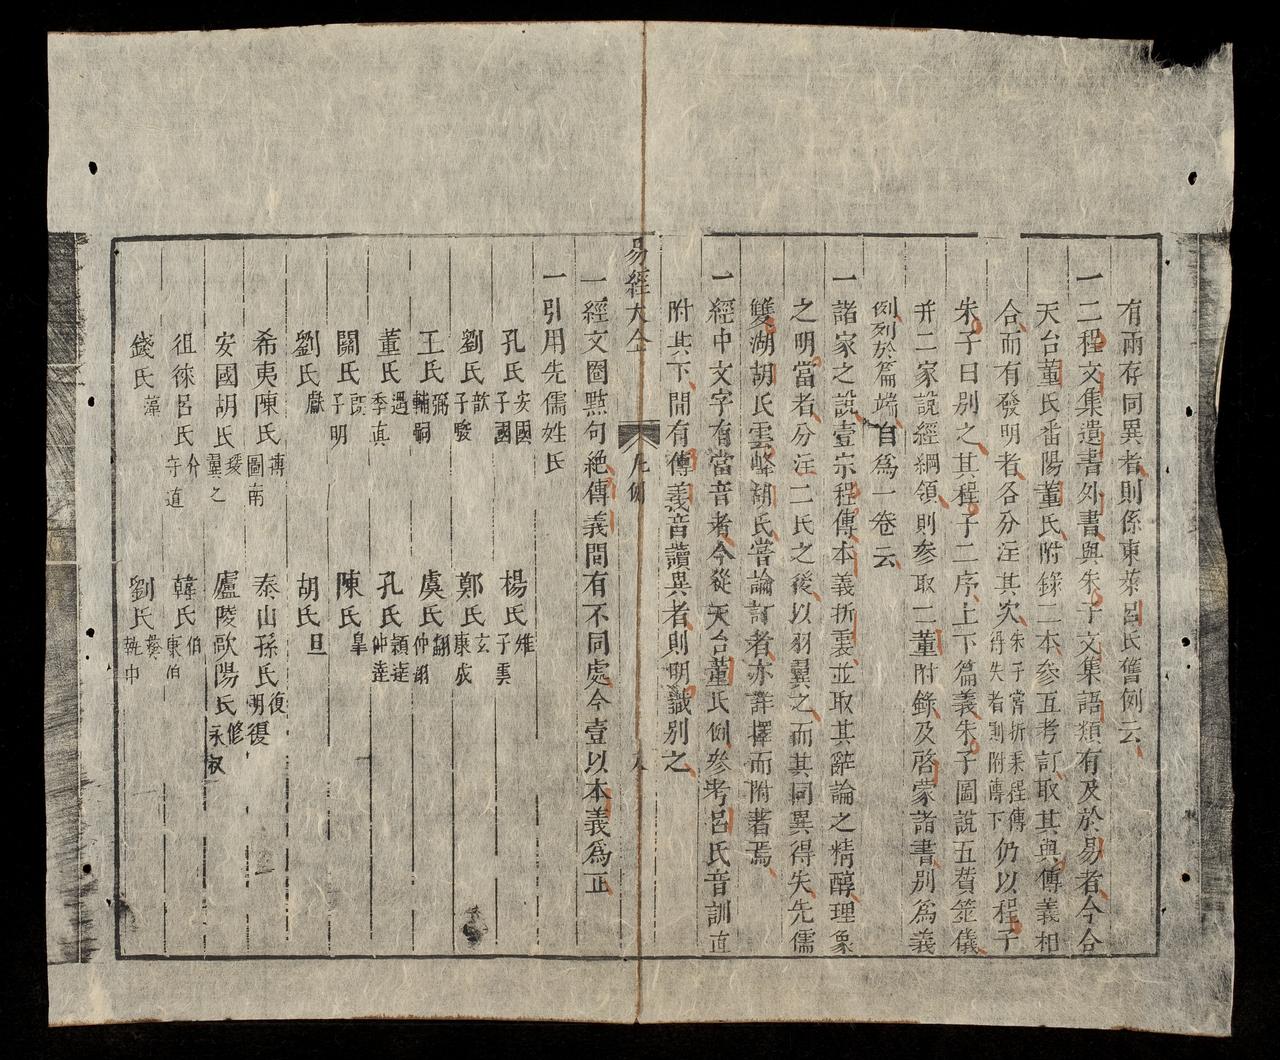 有兩存同異者則係東萊呂氏舊例云
一二程文集遺書外書與朱子文集語類有及於易者今合
天台董氏番陽董氏附錄二本參互考訂取其與傳義相
合而有發明者各分注其次朱子嘗折衷程傳得失者則附傳下仍以程子
朱子曰別之其程子二序上下篇義朱子圖說五贊筮儀
幷二家說經綱領則參取二董附錄及啓蒙諸書別爲義
例列於篇端自爲一卷云
一諸家之說壹宗程傳本義折衷並取其辭論之精醇理象
之明當者分注二氏之後以羽翼之而其同異得失先儒
雙湖胡氏雲峰胡氏嘗論訂者亦詳擇而附著焉
一經中文字有當音者今從天台董氏例參考呂氏音訓直
附其下間有傳義音讀異者則明識別之
易經大全 凡例 八
一經文圈點句絕傳義間有不同處今壹以本義爲正
一引用先儒姓氏
孔氏安國子國 楊氏雄子雲
劉氏歆子駿 鄭氏玄康成
王氏弼輔嗣 虞氏翻仲翔
董氏遇季真 孔氏穎達仲達
關氏朗子明 陳氏皐
劉氏獻 胡氏旦
希夷陳氏摶圖南 泰山孫氏復明復
安國胡氏瑗翼之 廬陵歐陽氏修永叔
徂徠呂氏介守道 韓氏伯康伯
錢氏藻 劉氏執中